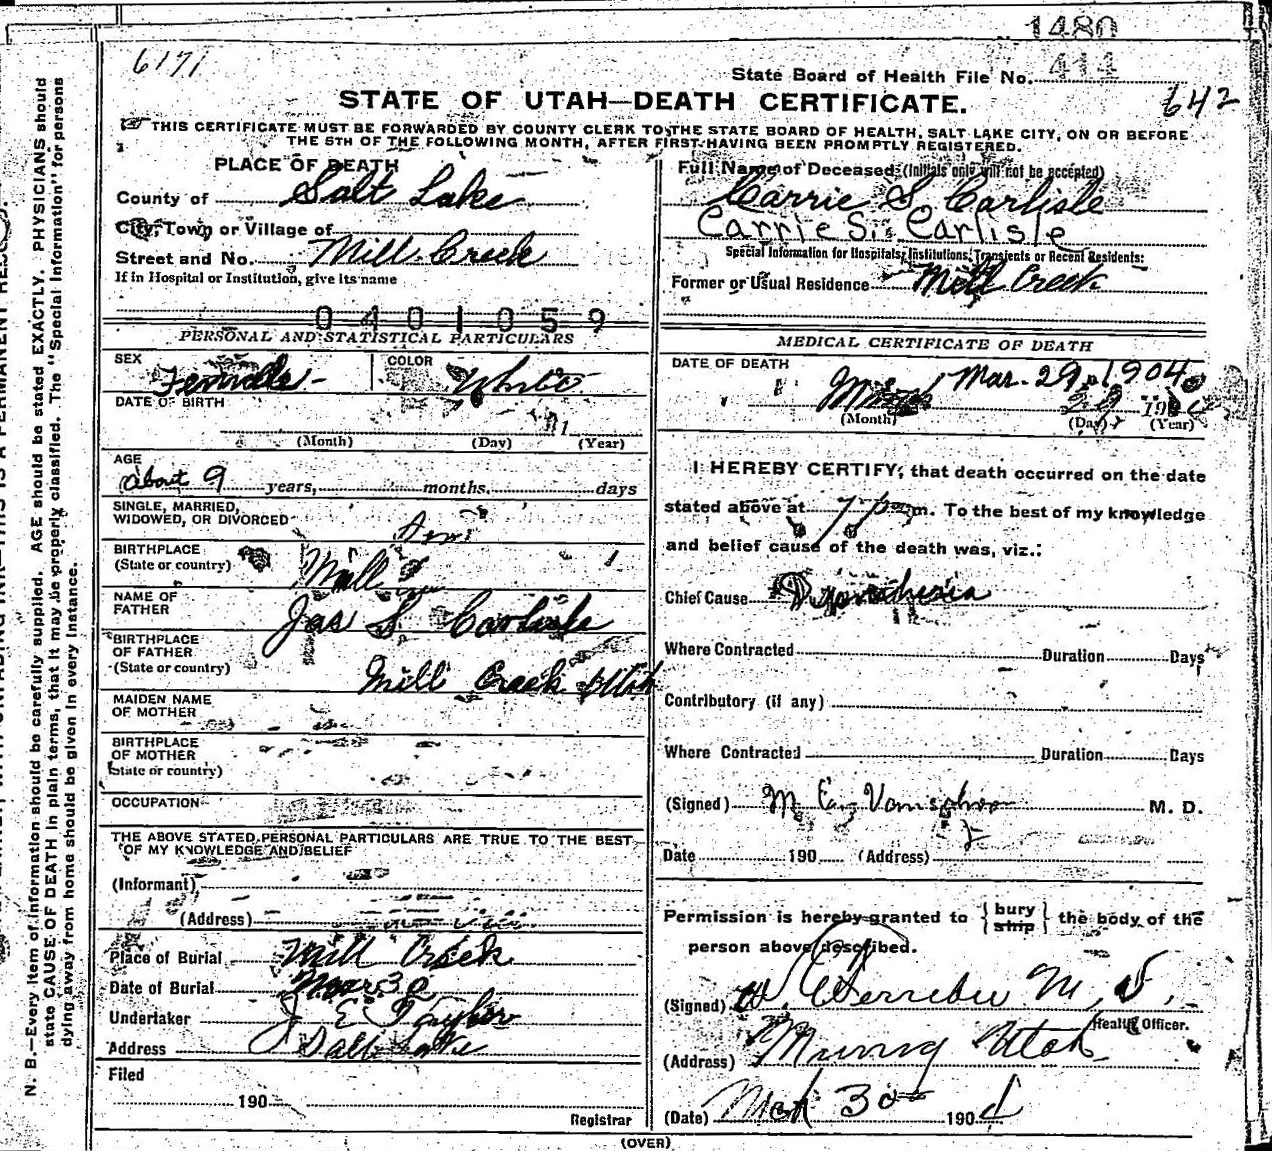 1480
6171
State Board of Health File No. 414
642
STATE OF UTAH—DEATH CERTIFICATE.
THIS CERTIFICATE MUST BE FORWARDED BY COUNTY CLERK TO THE STATE BOARD OF HEALTH, SALT LAKE CITY, ON OR BEFORE
THE 5TH OF THE FOLLOWING MONTH, AFTER FIRST HAVING BEEN PROMPTLY REGISTERED.
PLACE OF DEATH
County of Salt Lake
City, Town or Village of
Street and No. Mill Creek
If in Hospital or Institution, give its name
0401059
Full Name of Deceased (Initials only will not be accepted)
Carrie S Carlisle
Carrie S. Carlisle
Special Information for Hospitals, Institutions, Transients or Recent Residents:
Former or Usual Residence Mill Creek
PERSONAL AND STATISTICAL PARTICULARS
SEX Female
COLOR White
DATE OF BIRTH
(Month) (Day) (Year)
AGE
about 9 years, months, days
SINGLE, MARRIED,
WIDOWED, OR DIVORCED
BIRTHPLACE
(State or country) Mill
NAME OF
FATHER Jas S Carlisle
BIRTHPLACE
OF FATHER
(State or country) Mill Creek Utah
MAIDEN NAME
OF MOTHER
BIRTHPLACE
OF MOTHER
State or country)
OCCUPATION
THE ABOVE STATED PERSONAL PARTICULARS ARE TRUE TO THE BEST
OF MY KNOWLEDGE AND BELIEF
(Informant)
(Address)
Place of Burial Mill Creek
Date of Burial Mar 30
Undertaker J E Taylor
Address Salt Lake
Filed
190
Registrar
MEDICAL CERTIFICATE OF DEATH
DATE OF DEATH
Mar. 29, 1904
29 190
(Month) (Day) (Year)
I HEREBY CERTIFY, that death occurred on the date
stated above at 7 p m. To the best of my knowledge
and belief cause of the death was, viz.:
Chief Cause
Where Contracted Duration Days
Contributory (if any)
Where Contracted Duration Days
(Signed) M. D.
Date 190 (Address)
Permission is hereby granted to { bury ship } the body of the
person above described.
(Signed) M. D.
Health Officer.
(Address) Murray Utah
(Date) Mch 30 1904
(OVER)
N. B.—Every item of information should be carefully supplied. AGE should be stated EXACTLY. PHYSICIANS should
state CAUSE OF DEATH in plain terms, that it may be properly classified. The "Special Information" for persons
dying away from home should be given in every instance.